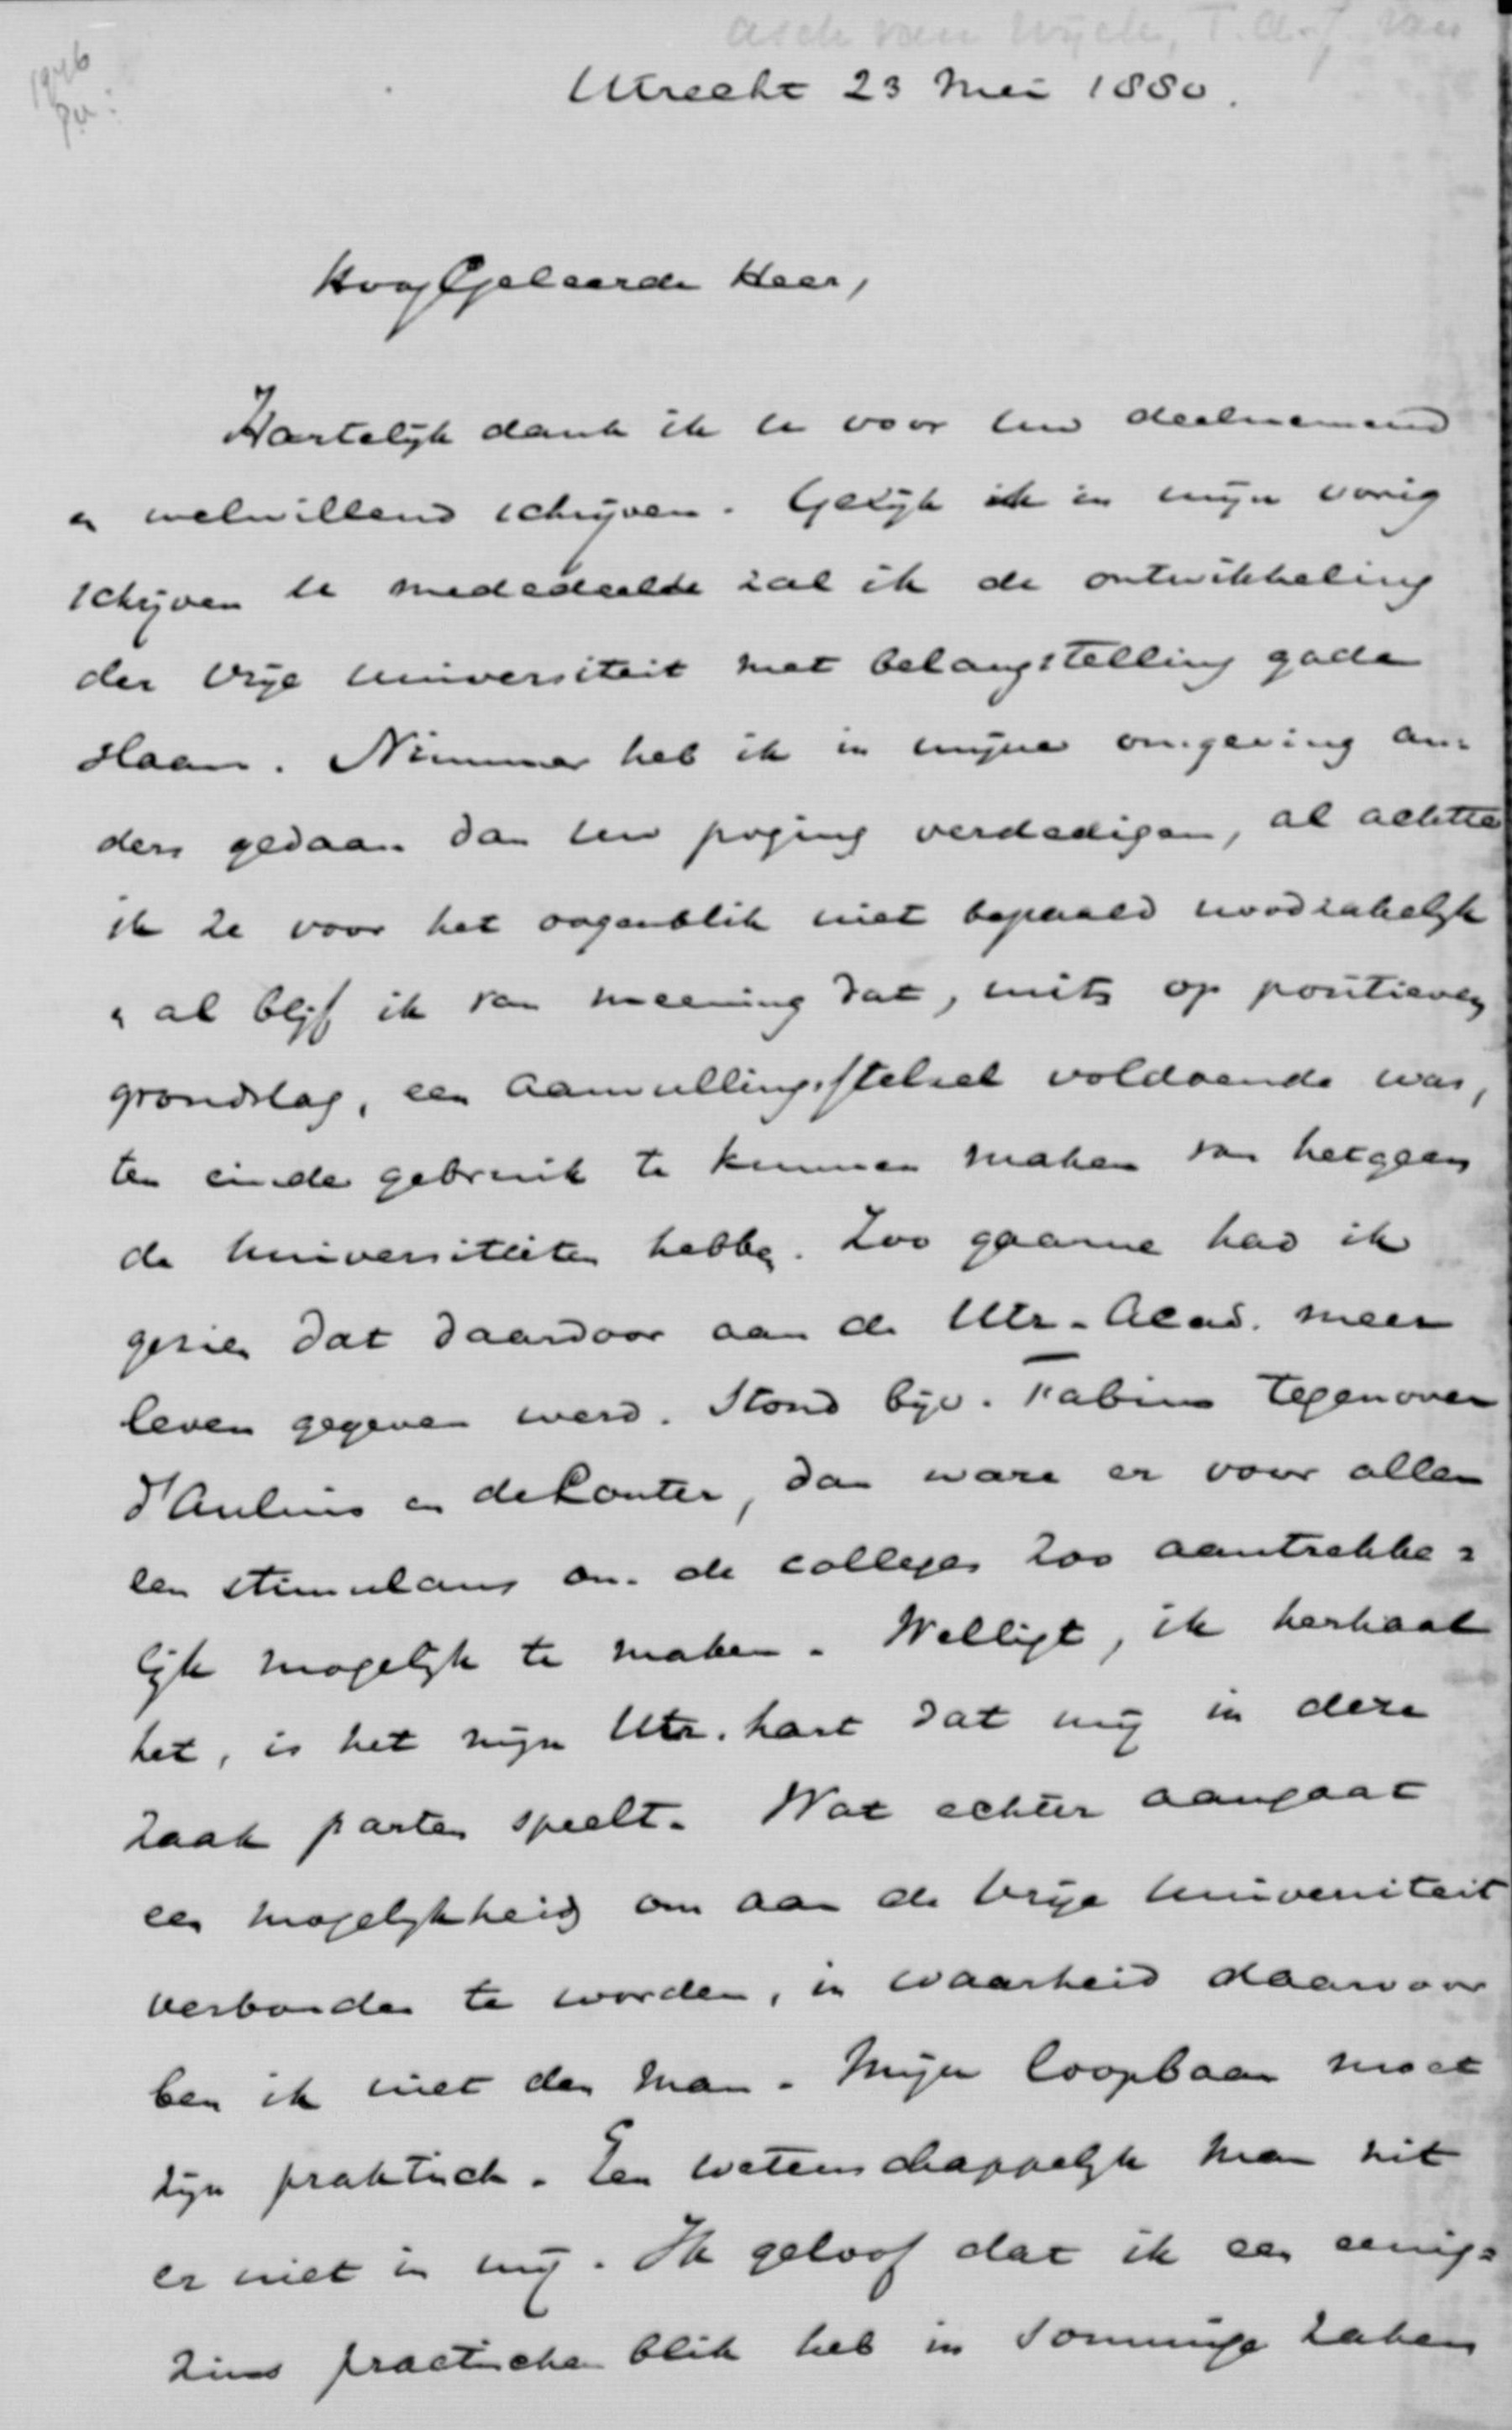 Asch van Wyck, T.A.J. van
1946
Utrecht 23 Mei 1880.
HoogGeleerde Heer,
Hartelijk dank ik U voor Uw deelnemend
en welwillend schrijven. Gelijk ik in mijn vorig
schrijven U mededeelde zal ik de ontwikkeling
der Vrije Universiteit met belangstelling gade
slaan. Nimmer heb ik in mijne omgeving an-
ders gedaan dan Uw poging verdedigen, al achtte
ik ze voor het oogenblik niet bepaald noodzakelijk
en al blijf ik van meening dat, mits op positieven
grondslag, een aanvullingsstelsel voldoende was,
ten einde gebruik te kunnen maken van hetgeen
de Universiteiten hebben. Zoo gaarne had ik
gezien dat daardoor aan de Utr. Acad. meer
leven gegeven werd. Stond bijv. Fabius tegenover
d'Aulnis en de Louter, dan ware er voor allen
een stimulans om de colleges zoo aantrekke=
lijk mogelijk te maken. Welligt, ik herhaal
het, is het mijn Utr. hart dat mij in deze
zaak parten speelt. Wat echter aangaat
een mogelijkheid om aan de Vrije Universiteit
verbonden te worden, in waarheid daarvoor
ben ik niet den man. Mijn loopbaan moet
zijn praktisch. Een wetenschappelijk man zit
er niet in mij. Ik geloof dat ik een eenig=
zins practischen blik heb in sommige zaken